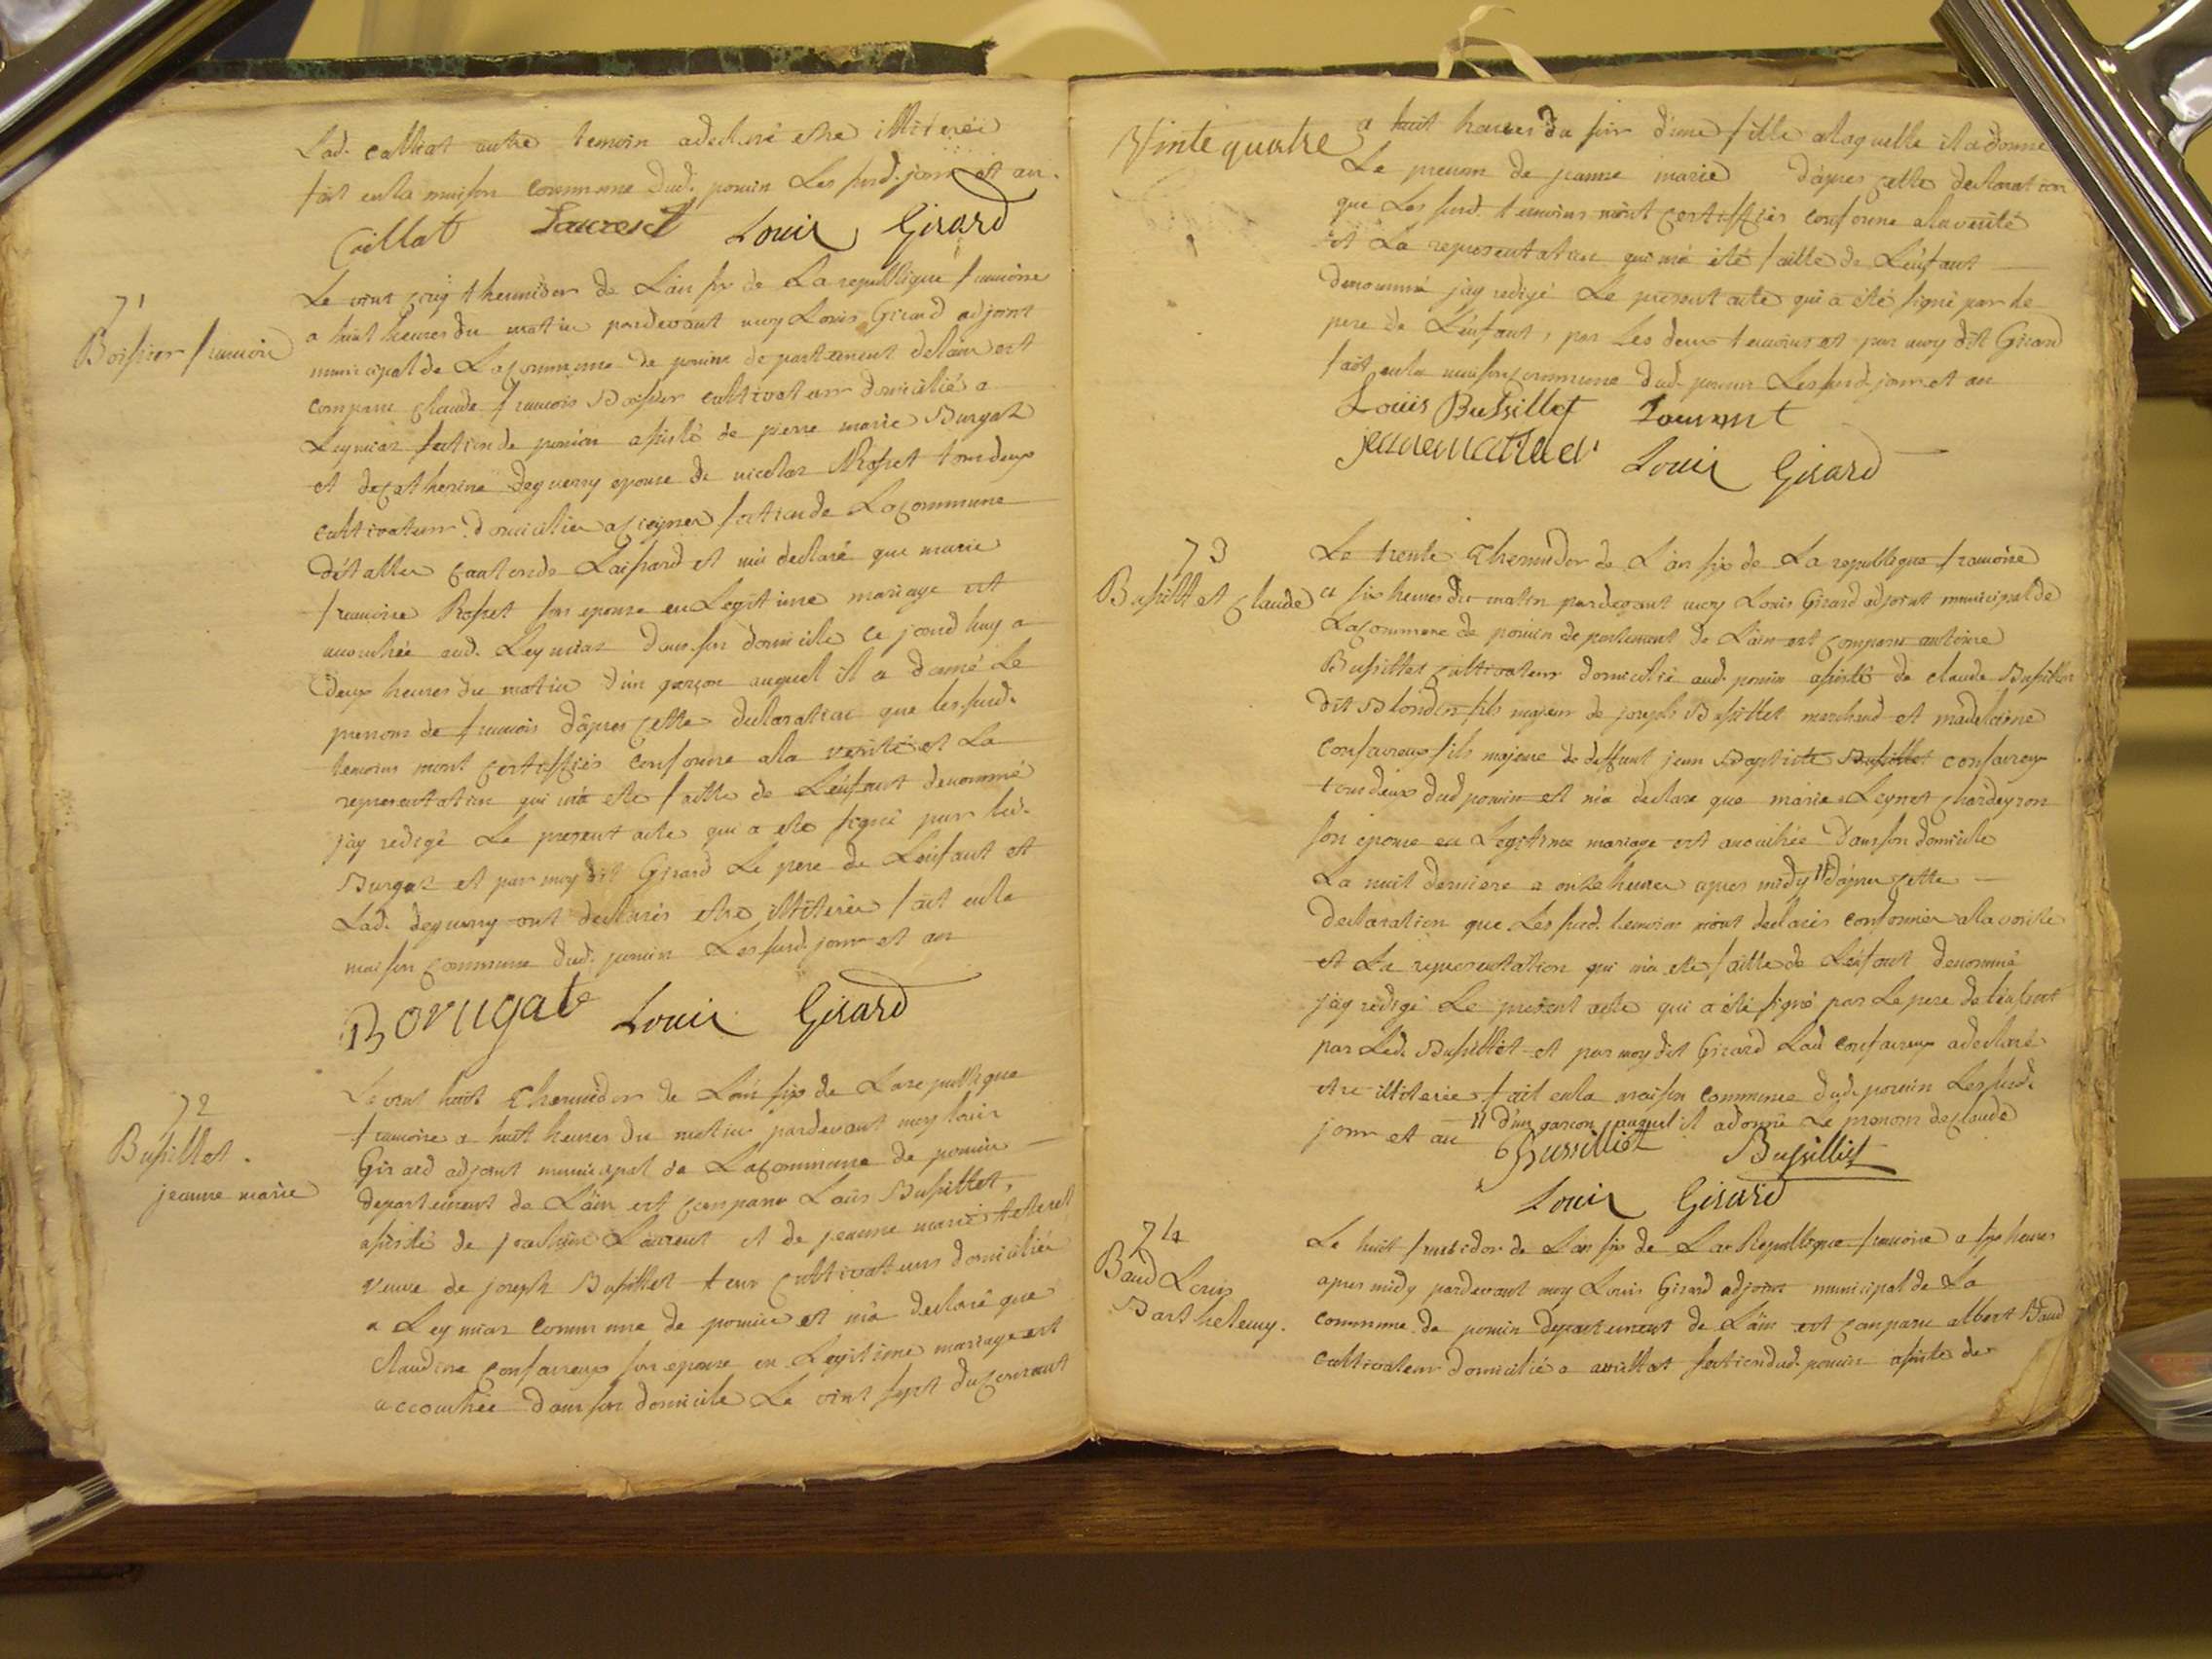 Lad. calliat autre temoin a declaré etre illiterée
fait en la maison commune dud. poncin Les susd. jour et an.
Caillat Laurent Louis Girard
71
Boissier francois
Le vint cinq thermidor de L'an six de La republique francoise
a huit heures du matin pardevant moy Louis Girard adjoint
municipal de La commune de poncin departement de lain est
comparu claude francois Boissier cultivateur domicilié a
Leymiaz section de poncin assisté de pierre marie Burgat
et de catherine deguerry epouse de nicolas Rosset tous deux
cultivateurs domiciliés a section de La commune
canton de et m'a declaré que marie
francoise Rosset son epouse en Legitime mariage est
accouchée aud. Leymiaz dans son domicile ce jourd huy a
deux heures du matin d'un garçon auquel il a donné Le
prenom de francois d'apres cette declaration que les susd.
temoins mont certiffiés conforme a la verité et La
representation qui m'a ete faitte de L'enfant denommé
j'ay redigé Le present acte qui a eté signé par led.
Burgat et par moy dit Girard Le pere de L'enfant et
Lad. deguerry ont declarés etre illiterés fait en la
maison commune dud. poncin Les susd. jour et an
Louis Girard
72
Bussillet.
jeanne marie
Le vint huit Thermidor de L'an six de La republique
francoise a huit heures du matin pardevant moy louis
Girard adjoint municipal de La commune de poncin
departement de L'ain est comparu Louis Bussillet,
assisté de joachim Laurent et de jeanne marie
veuve de joseph Bussillet tous cultivateurs domiciliés
a Leymiaz commune de poncin et m'a declaré que
Claudine confavreux son epouse en Legitime mariage est
accouchée dans son domicile Le vint sept du courant
Vinte quatre
a huit heures du soir d'une fille a laquelle il a donné
Le prenom de jeanne marie d'apres cette declaration
que Les susd. temoins m'ont certiffiés conforme a la verité
et La representation qui m'a été faitte de L'enfant
denommé j'ay redigé Le present acte qui a été signé par le
pere de L'enfant, par Les deux temoins et par moy dit Girard
fait en la maison commune dud. poncin Les susd. jour et an
Louis Bussillet Laurent
Louis Girard
73
Bussillet Claude
Le trente Thermidor de L'an six de La republique francoise
a six heures du matin pardevant moy Louis Girard adjoint municipal de
La commune de poncin departement de L'ain est comparu antoine
Bussillet cultivateur domicilié aud. poncin assisté de claude Bussillet
dit Blondin fils majeur de joseph Bussillet marchand et madelaine
confavreux fils majeure de deffunt jean Baptiste Bussillet confavreux
tous deux dud poncin et m'a declaré que marie Leynet Chardeyron
son epouse en Legitime mariage est accouchée dans son domicile
La nuit derniere a onze heures apres midy // d'apres cette
declaration que Les susd. temoins m'ont declarés conforme a la verité
et La representation qui m'a eté faitte de L'enfant denommé
j'ay redigé Le present acte qui a été signé par Le pere de l'enfant
par Led. Bussillet et par moy dit Girard Lad confavreux a declaré
etre illiterée fait en la maison commune dud. poncin Les susd.
jour et an // d'un garçon auquel il a donné Le prenom de claude
Bussilliet Bussilliet
Louis Girard
74
Baud Louis
Barthelemy.
Le huit fructidor de L'an six de La Republique francoise a six heures
apres midy pardevant moy Louis Girard adjoint municipal de La
commune de poncin departement de L'ain est comparu albert Baud
cultivateur domicilié a section dud. poncin assisté de